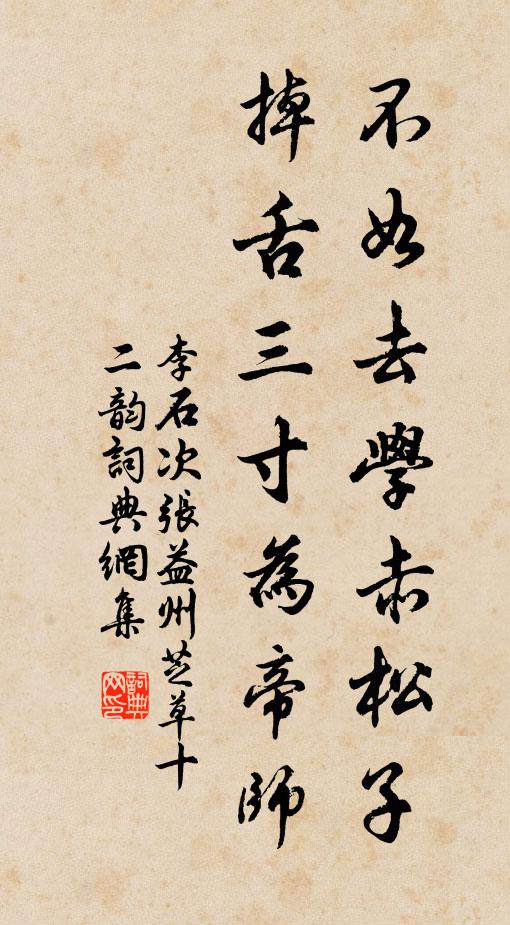 不如去學赤松子
掉舌三寸為帝師
李石次張益州芝草十
二韵詞典網集
詞典网印